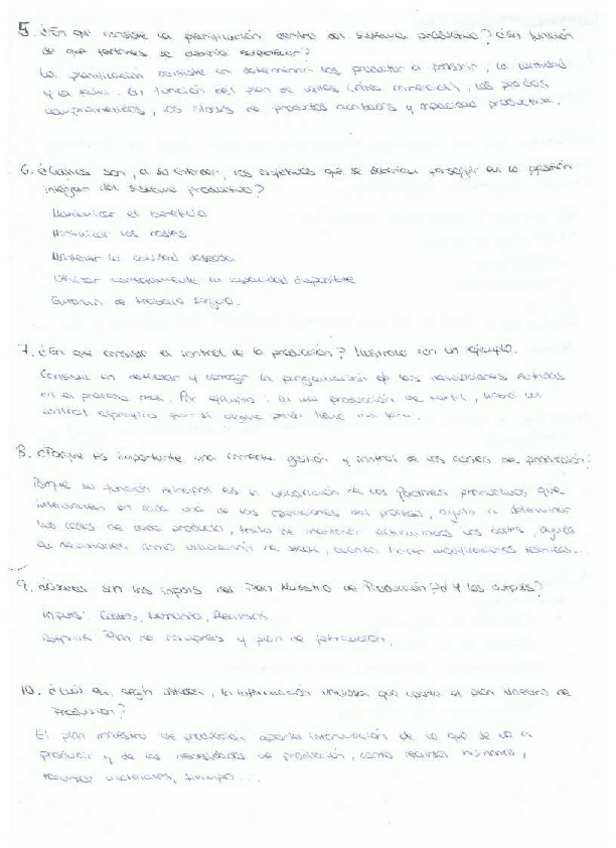 5. ¿En qué consiste la planificación dentro del sistema productivo? ¿En función
de qué factores se debería establecer?
La planificación consiste en determinar los productos a producir, la cantidad
y la fecha. En función del plan de ventas, los pedidos
, los stocks de productos acabados y capacidad productiva.
6. ¿Cuáles son, a su entender, los objetivos que se deberían perseguir en la gestión
integral del sistema productivo?
Maximizar el beneficio
Minimizar los costes
Mantener la calidad deseada
Utilizar correctamente la capacidad disponible
de trabajo seguro.
7. ¿En qué consiste el control de la producción? Ilústrelo con un ejemplo.
Consiste en detectar y corregir la programación de las sufridas
en el proceso real. Por ejemplo: en una producción de
control
8. ¿Porque es importante una correcta gestión y control de los costes de producción?
Porque su función principal es la valoración de los factores productivos que
intervienen en cada una de las operaciones del proceso, ayuda a determinar
los costes de cada producto, trata de mantener actualizados los costes, ayuda
como valoración de stock, modificaciones técnicas...
9. ¿Cuáles son los inputs del Plan Maestro de Producción? ¿Y los outputs?
Inputs: Costes, Demanda, Recursos
Outputs: Plan de compras y plan de fabricación.
10. ¿Cuál es, según , la información que aporta el plan maestro de
Producción?
El plan maestro de producción aporta información de lo que se va a
producir y de las necesidades de producción, como recursos humanos,
recursos materiales, tiempo...